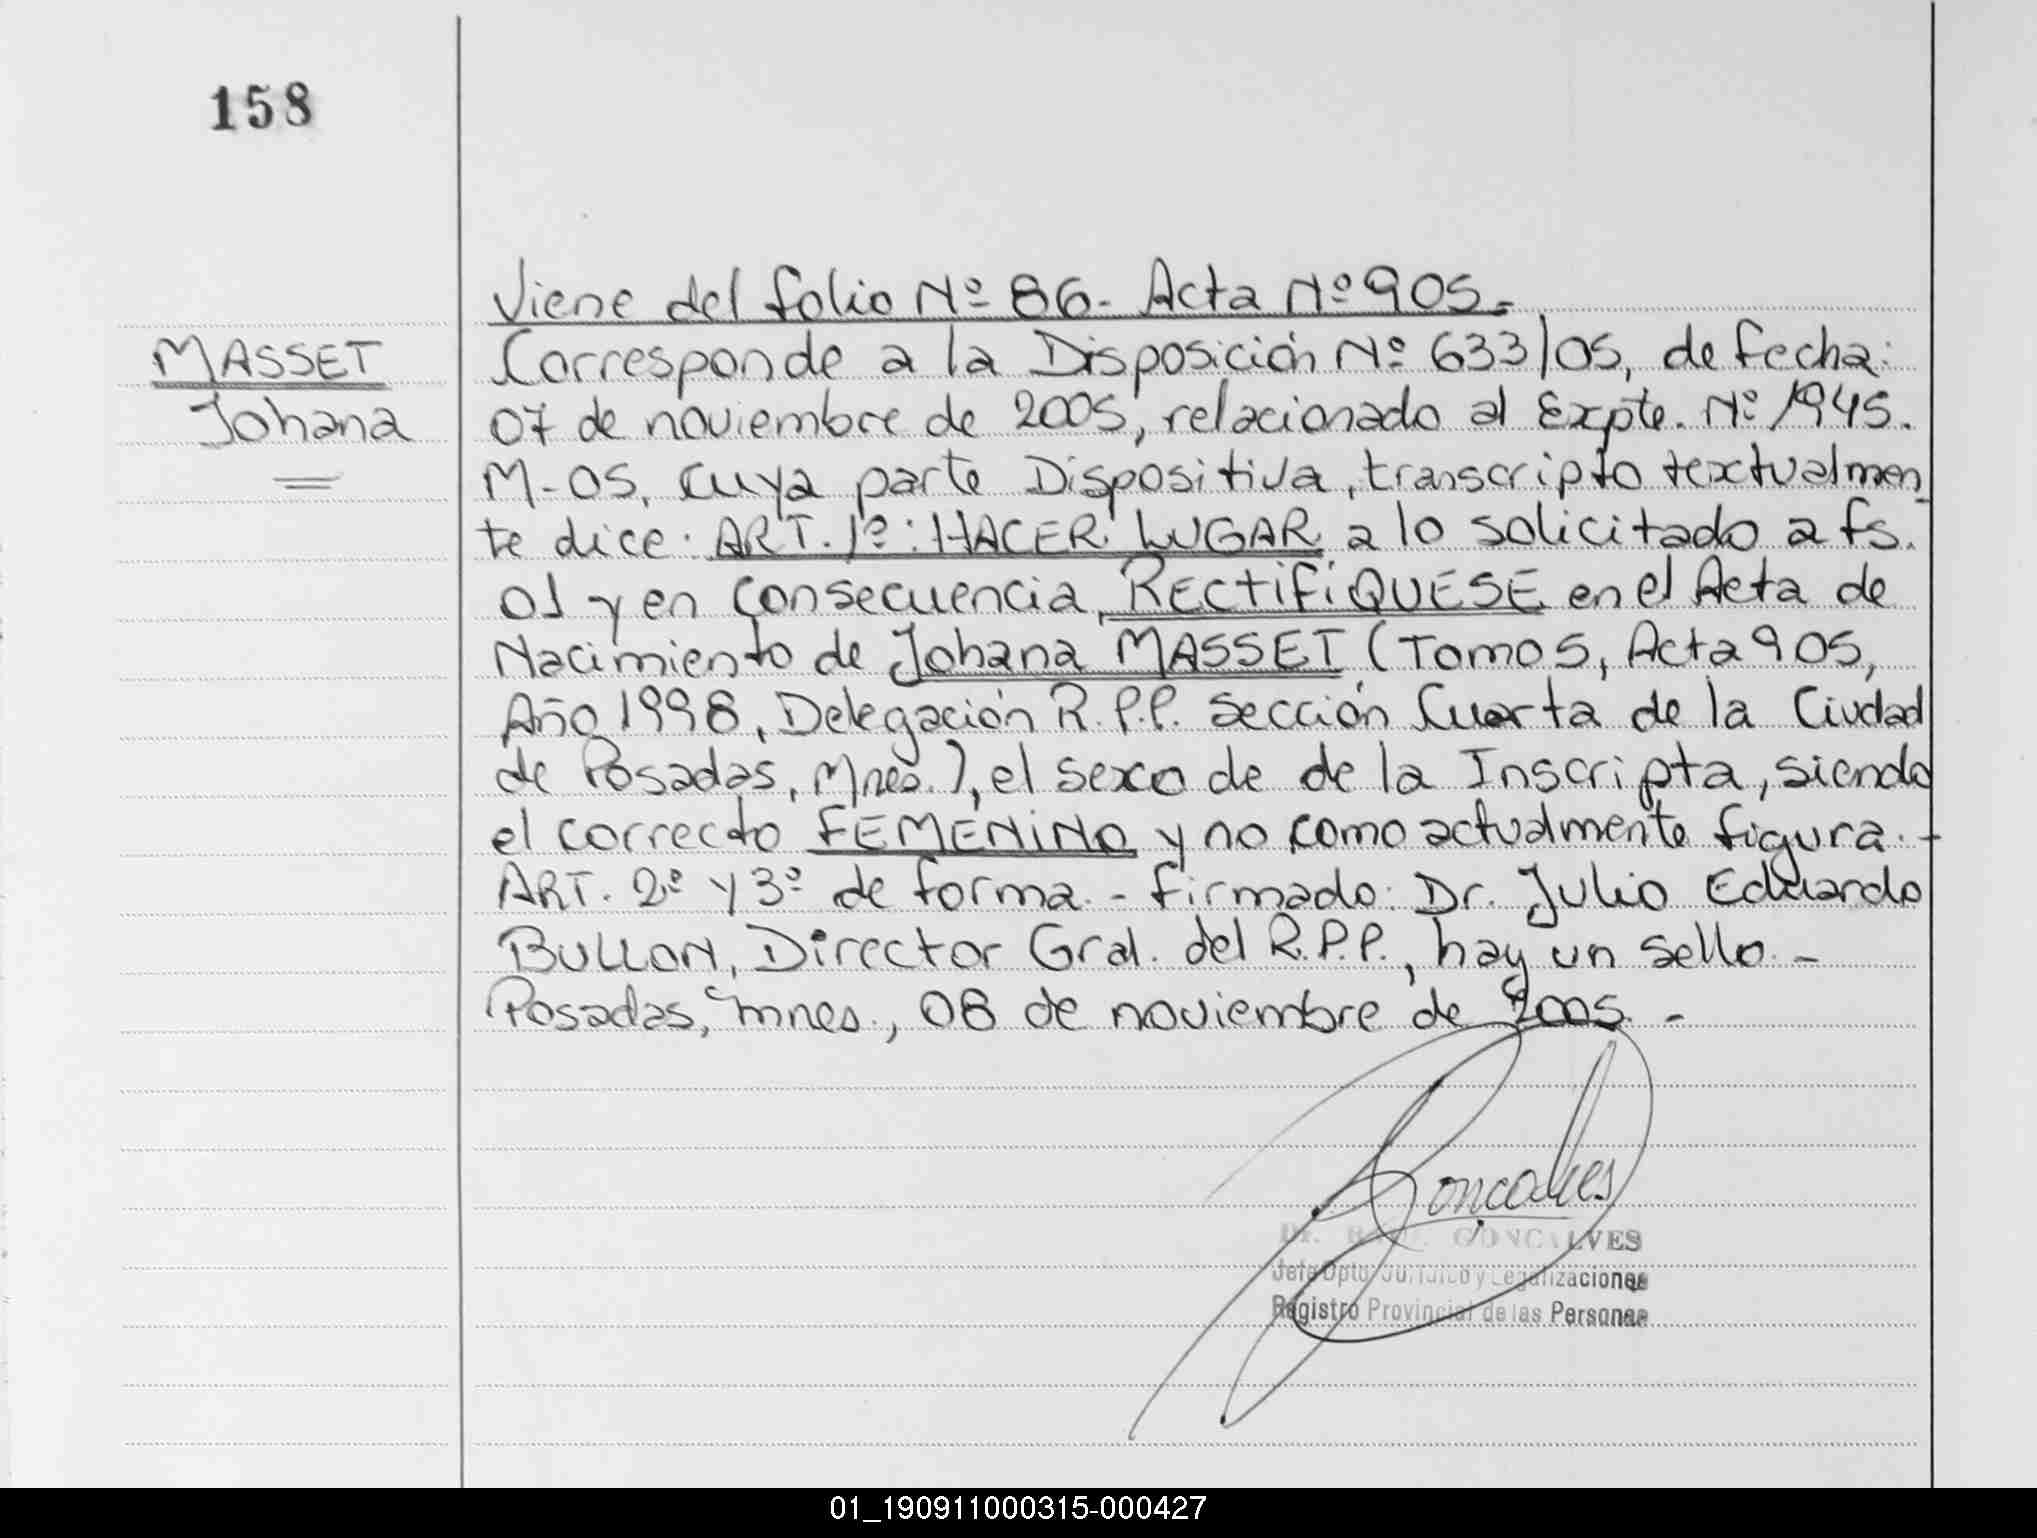 158
MASSET
Johana
Viene del folio Nº 86- Acta Nº 905.-
Corresponde a la Disposición Nº 633/05, de fecha:
07 de noviembre de 2005, relacionado al Expte. Nº 1945.
M-05, cuya parte Dispositiva, transcripto textualmen
te dice: ART. 1º: HACER LUGAR a lo solicitado a fs.
01 y en consecuencia, RECTIFIQUESE en el Acta de
Nacimiento de Johana MASSET (Tomo 5, Acta 905,
Año 1998, Delegación R.P.P. Sección Cuarta de la Ciudad
de Posadas, Mnes.), el sexo de de la Inscripta, siendo
el correcto FEMENINO y no como actualmente figura.-
ART. 2º y 3º de forma.- Firmado: Dr. Julio Eduardo
BULLON, Director Gral. del R.P.P., hay un sello.-
Posadas, mnes., 08 de noviembre de 2005.-
Goncalves
Dr. GONCALVES
Jefe Dpto. Jurídico y Legalizaciones
Registro Provincial de las Personas
01_190911000315-000427